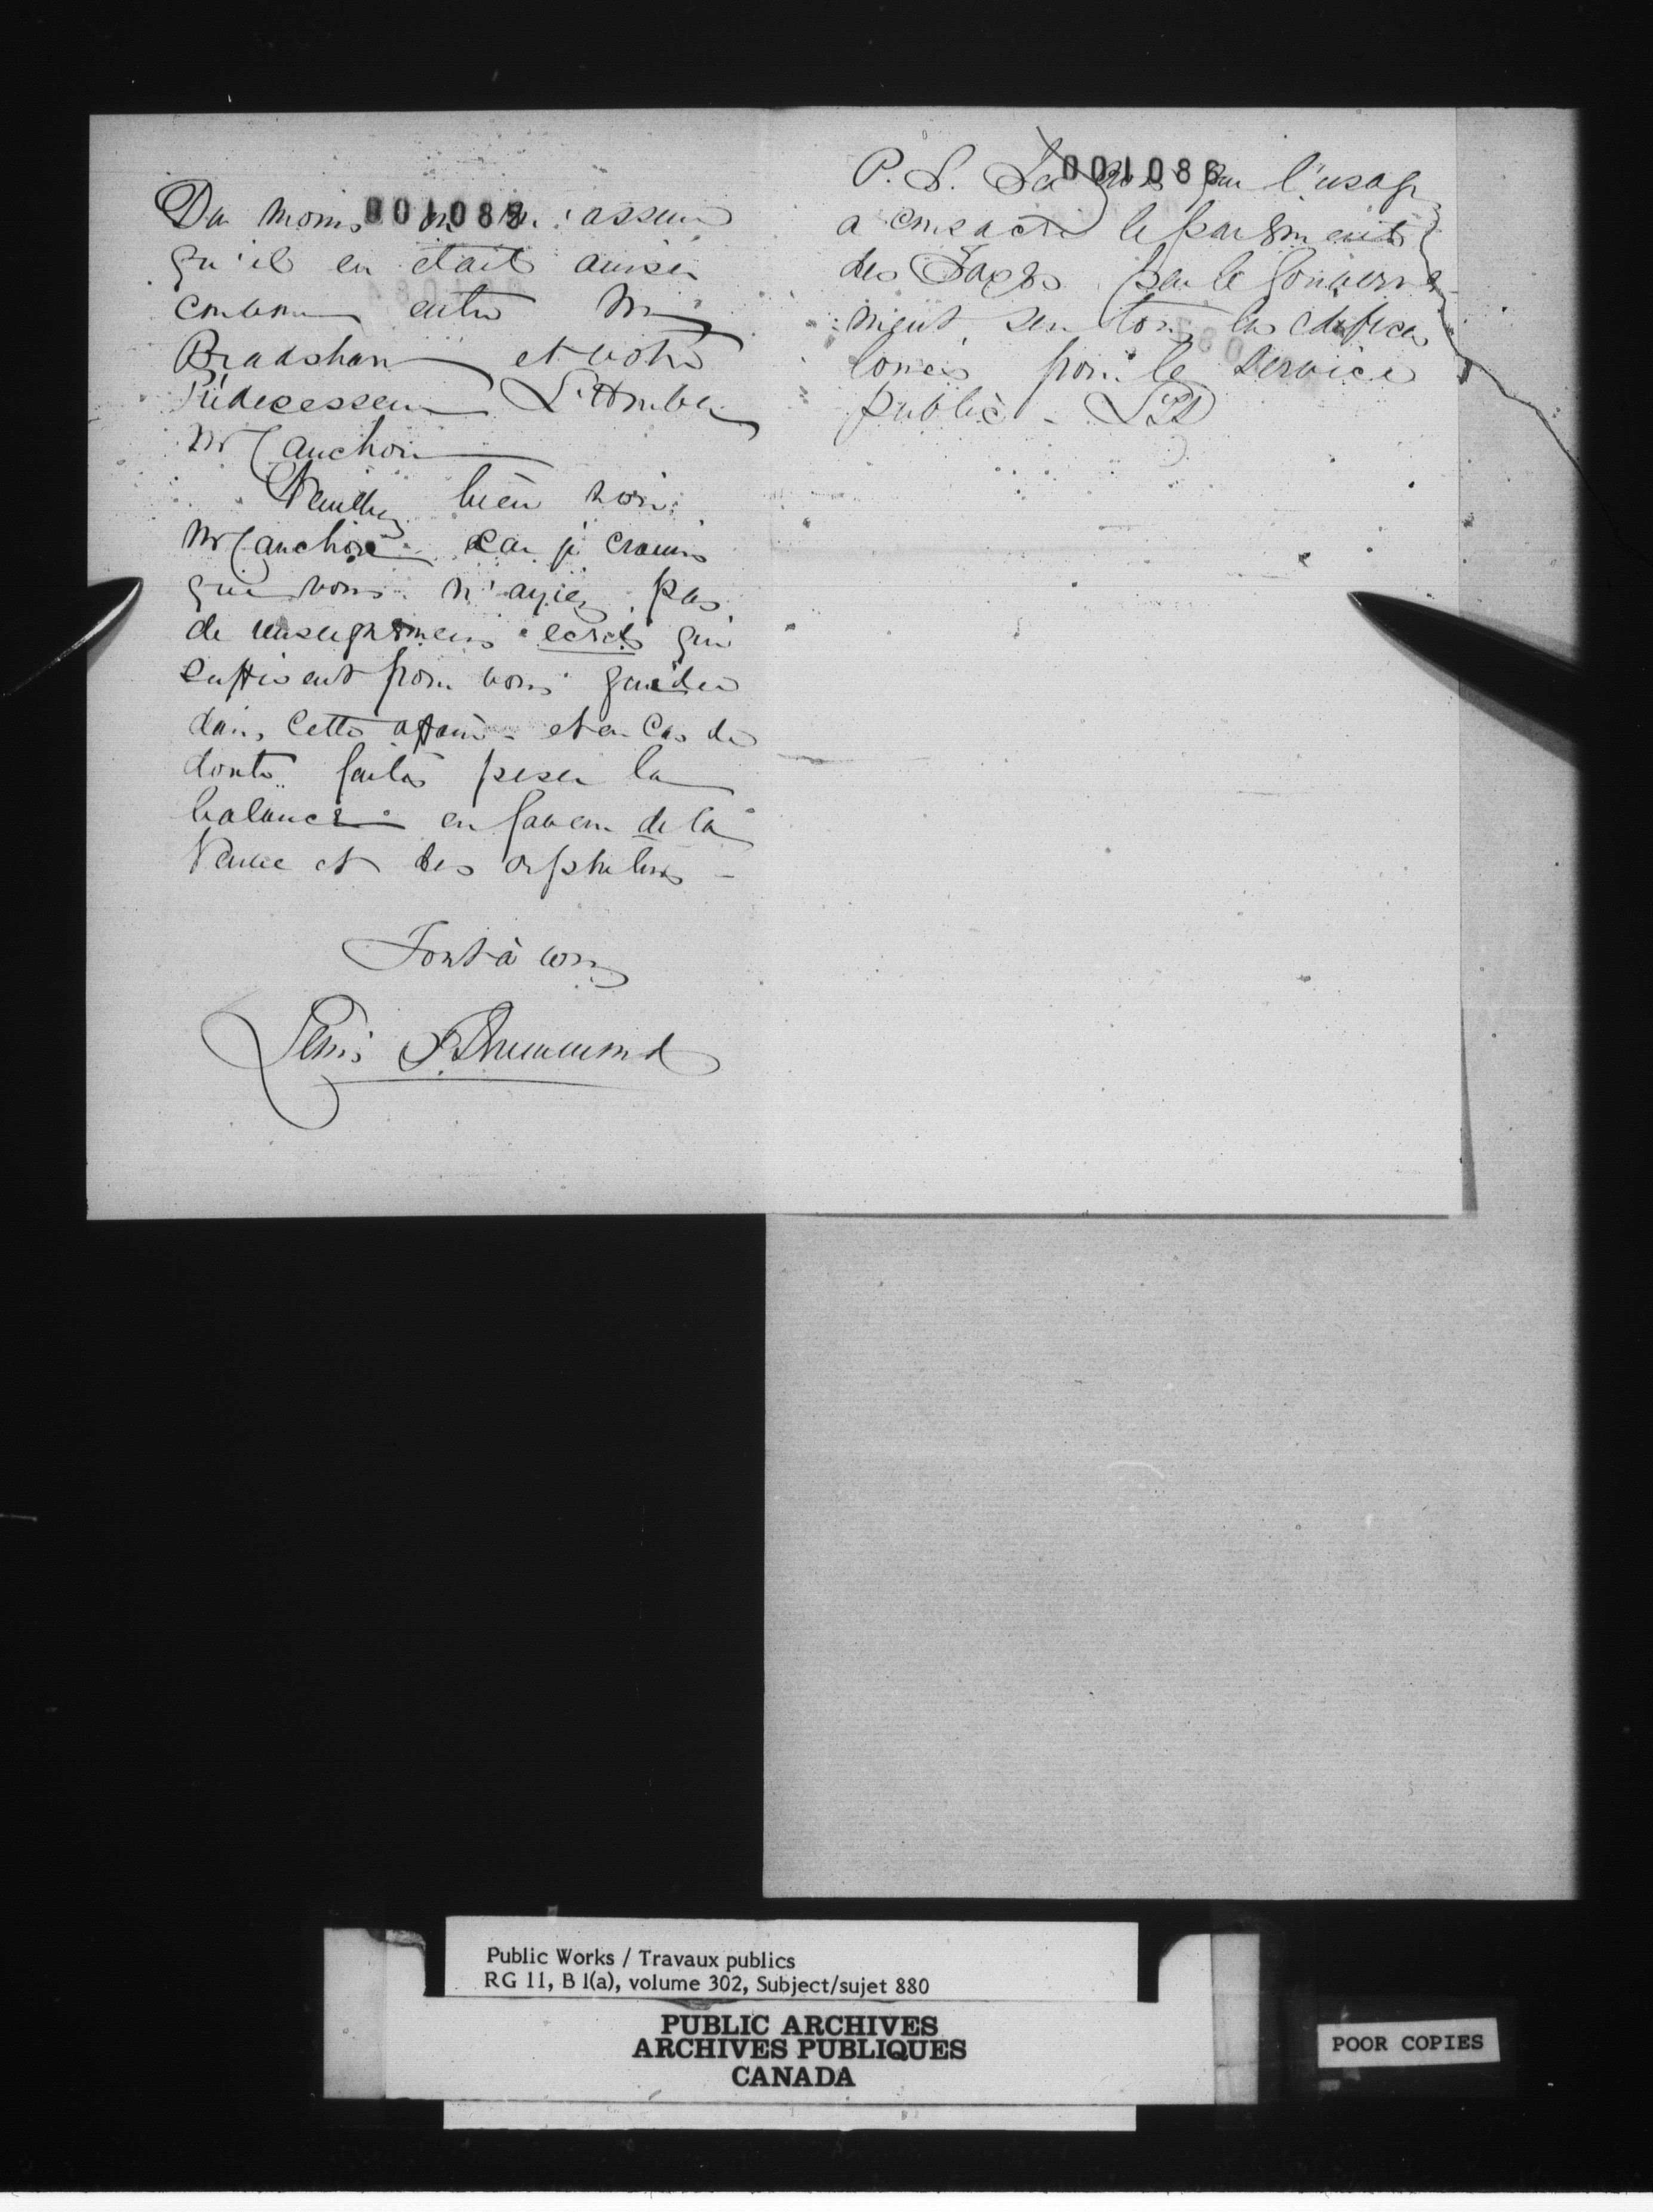 Du moins on m'assure
qu'il en était ainsi
convenu entre Mr
Bradshaw et votre
Prédecesseur L'Honble
Mr Cauchon
Veuillez bien voir
Mr Cauchon car je crains
que vous n'ayiez pas
de renseignemens écrits qui
suffisent pour vous guider
dans cette affaire - et en cas de
doute faites peser la
balance en faveur de la
Veuve et des orphelins -
Tout à vous
Lewis T. Drummond
001086
P.S. par l'usage
a consacré le paiement
des Taxes par le Gouverne-
ment sur tous les édifices
loués pour le service
public - LTD
Public Works / Travaux publics
RG 11, B 1(a), volume 302, Subject/sujet 880
PUBLIC ARCHIVES
ARCHIVES PUBLIQUES
CANADA
POOR COPIES